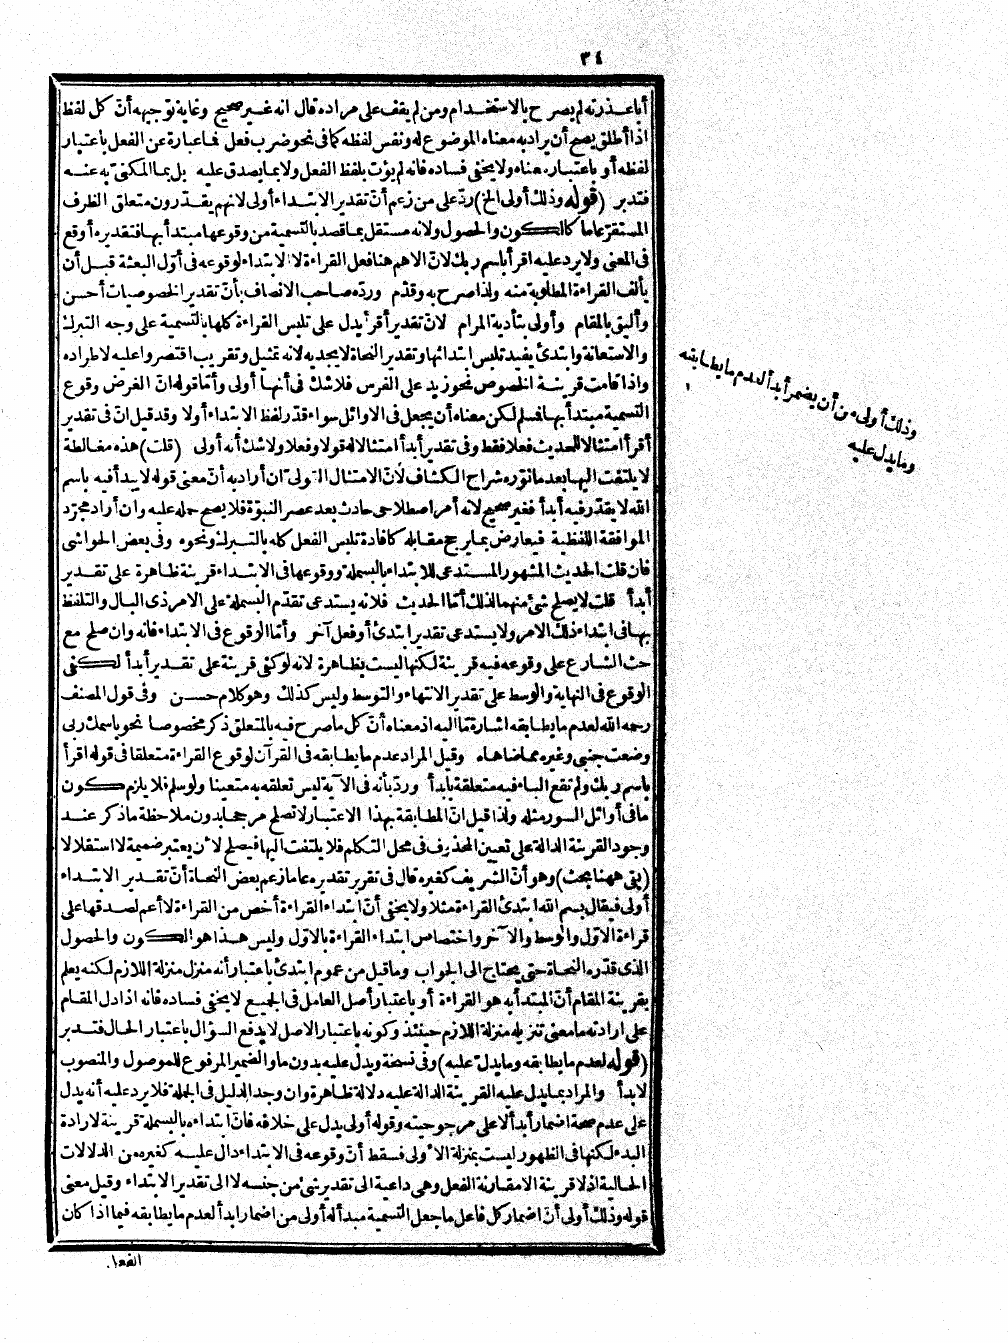 ٣٤
أباعذرته لم يصرح بالاستخدام ومن لم يقف على مراده قال انه غير صحيح وغاية توجيهه أنّ كل لفظ
اذا أطلق يصح أن يراد به معناه الموضوع له ونفس لفظه كما فى نحو ضرب فعل فما عبارة عن الفعل باعتبار
لفظه أو باعتبار معناه ولا يخفى فساده فانه لم يؤت بلفظ الفعل ولا بما يصدق عليه بل بما المكنىّ به عنه
فتدبر (قوله وذلك أولى الخ) ردّ على من زعم أنّ تقدير الابتداء أولى لانهم يقدّرون متعلق الظرف
المستقرّ عاما كالكون والحصول ولانه مستقل بما قصد بالتسمية من وقوعها مبتدأ بها فتقديره أوقع
فى المعنى ولا يرد عليه اقرأ باسم ربك لانّ الاهم هنا فعل القراءة لا الابتداء لوقوعه فى أوّل البعثة قبل أن
يألف القراءة المطلوبة منه ولذا صرح به وقدّم وردّه صاحب الانصاف بأنّ تقدير الخصوصيات أحسن
وأليق بالمقام وأولى بتأدية المرام لانّ تقدير أقرأ يدل على تلبس القراءة كلها بالتسمية على وجه التبرك
والاستعانة وابتدئ يفيد تلبس ابتدائها وتقدير النحاة لا يجديه لانه تمثيل وتقريب اقتصروا عليه لاطراده
واذا قامت قرينة الخصوص نحو زيد على الفرس فلا شك فى أنها أولى وأمّا قوله انّ الغرض وقوع
التسمية مبتدأ بها فسلم لكن معناه أن يجعل فى الاوائل سواء قدّر لفظ الابتداء أولا وقد قيل انّ فى تقدير
أقرأ امتثالا للحديث فعلا فقط وفى تقدير أبدأ امتثالا له قولا وفعلا ولا شك أنه أولى (قلت) هذه مغالطة
لا يلتفت اليها بعد ما نوّره شراح الكشاف لأنّ الامتثال القولىّ ان أراد به أنّ معنى قوله لا يبدأ فيه باسم
الله لا يقدّر فيه أبدأ فغير صحيح لانه أمر اصطلاحى حادث بعد عصر النبوّة فلا يصح حمله عليه وان أراد مجرّد
الموافقة اللفظية فيعارض بما يرجح مقابله كافادة تلبس الفعل كله بالتبرك ونحوه وفى بعض الحواشى
فان قلت الحديث المشهور المستدعى للابتداء بالبسملة ووقوعها فى الابتداء قرينة ظاهرة على تقدير
أبدأ قلت لا يصلح شئ منهما لذلك أمّا الحديث فلانه يستدعى تقدّم البسملة على الامر ذى البال والتلفظ
بها فى ابتداء ذلك الامر ولا يستدعى تقدير ابتدئ أو فعل آخر وأمّا الوقوع فى الابتداء فانه وان صلح مع
حث الشارع على وقوعه فيه قرينة لكنها ليست بظاهرة لانه لو كفى قرينة على تقدير أبدأ لكفى
الوقوع فى النهاية والوسط على تقدير الانتهاء والتوسط وليس كذلك وهو كلام حسن وفى قول المصنف
رحمه الله لعدم ما يطابقه اشارة مّا اليه اذ معناه أنّ كل ما صرح فيه بالمتعلق ذكر مخصوصا نحو باسمك ربى
وضعت جنبى وغيره مما ضاهاه وقيل المراد عدم ما يطابقه فى القرآن لوقوع القراءة متعلقا فى قوله اقرأ
باسم ربك ولم تقع الباء فيه متعلقة بأبدأ وردّ بأنه فى الآية ليس تعلقه به متعينا ولو سلم فلا يلزم كون
ما فى أوائل السور مثله ولذا قيل انّ المطابقة بهذا الاعتبار لا تصلح مرجحا بدون ملاحظة ما ذكر عند
وجود القرينة الدالة على تعيين المحذوف فى محل التكلم فلا يلتفت اليها فيصلح لأن يعتبر ضميمة لا استقلالا
(بقى ههنا بحث) وهو أنّ الشريف كغيره قال فى تقرير تقديره عاما زعم بعض النحاة أنّ تقدير الابتداء
أولى فيقال بسم الله ابتدئ القراءة مثلا ولا يخفى أنّ ابتداء القراءة أخص من القراءة لا أعم لصدقها على
قراءة الاوّل والوسط والآخر واختصاص ابتداء القراءة بالاوّل وليس هذا هو الكون والحصول
الذى قدّره النحاة حتى يحتاج الى الجواب وما قيل من عموم ابتدئ باعتبار أنه منزل منزلة اللازم لكنه يعلم
بقرينة المقام أنّ المبتدأ به هو القراءة أو باعتبار أصل العامل فى الجميع لا يخفى فساده فانه اذا دل المقام
على ارادته ما معنى تنزيله منزلة اللازم حينئذ وكونه باعتبار الاصل لا يدفع السؤال باعتبار الحال فتدبر
(قوله لعدم ما يطابقه وما يدل عليه) وفى نسخة ويدل عليه بدون ما والضمير المرفوع للموصول والمنصوب
لابدأ والمراد بما يدل عليه القرينة الدالة عليه دلالة ظاهرة وان وجد الدليل فى الجملة فلا يرد عليه أنه يدل
على عدم صحة اضمار أبدأ لا على مرجوحيته وقوله أولى يدل على خلافه فانّ ابتداءه بالبسملة قرينة لارادة
البدء لكنها فى الظهور ليست بمنزلة الأولى فقط أنّ وقوعه فى الابتداء دال عليه كغيره من الدلالات
الحالية اذ لا قرينة الا مقارنة الفعل وهى داعية الى تقدير شئ من جنسه لا الى تقدير الابتداء وقيل معنى
قوله وذلك أولى أنّ اضمار كل فاعل ما جعل التسمية مبدأ له أولى من اضمار ابدأ لعدم ما يطابقه فيما اذا كان
الفعل
وذلك أولى من أن يضمر أبدأ لعدم ما يطابقه
وما يدل عليه